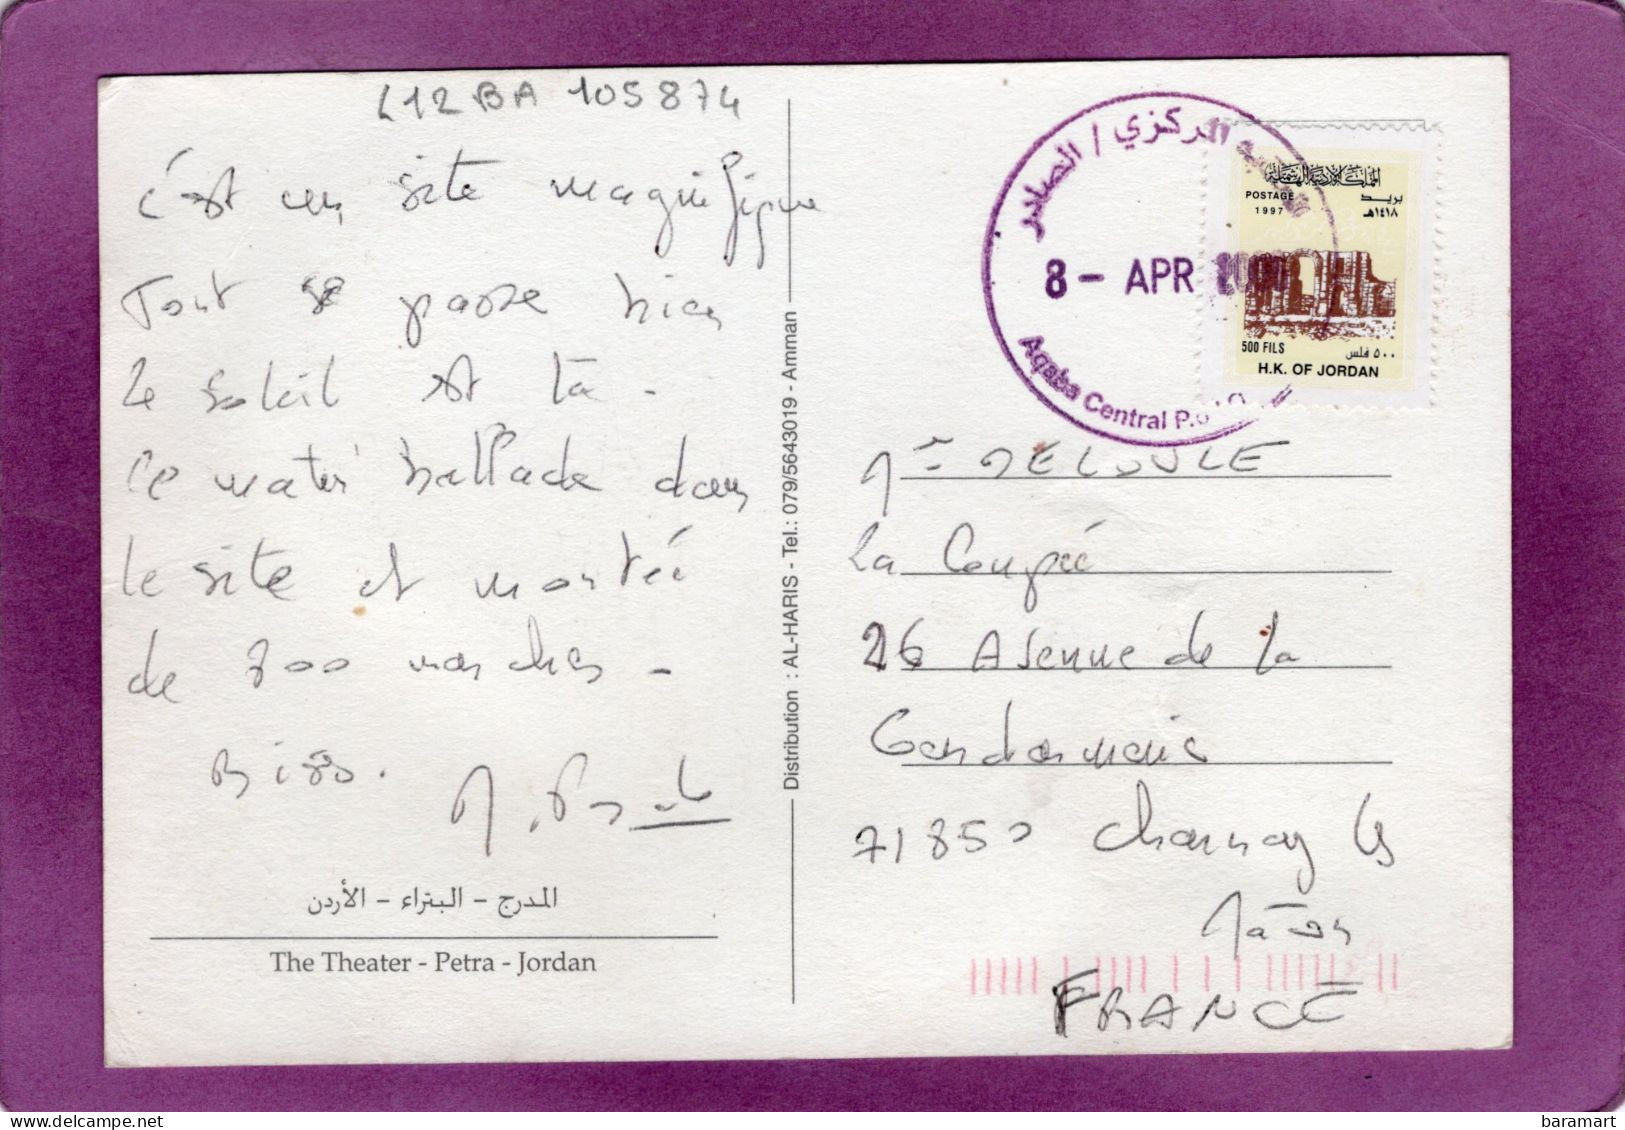 L12BA 105874
c'est un site magnifique
Tout se passe bien
Le soleil est là -
Ce matin ballade dans
le site et montée
de 800 marches -
Bises.
المدرج - البتراء - الأردن
The Theater - Petra - Jordan
Distribution : AL-HARIS - Tel.: 079/5643019 - Amman
المركزي / الصادر
8 - APR 2000
Aqaba Central P.O
المملكة الأردنية الهاشمية
POSTAGE بريد
1997 ١٤١٨هـ
500 FILS ٥٠٠ فلس
H.K. OF JORDAN
La Coupée
26 Avenue de la
Gendarmerie
71850 Charnay les
Mâcon
FRANCE
baramart